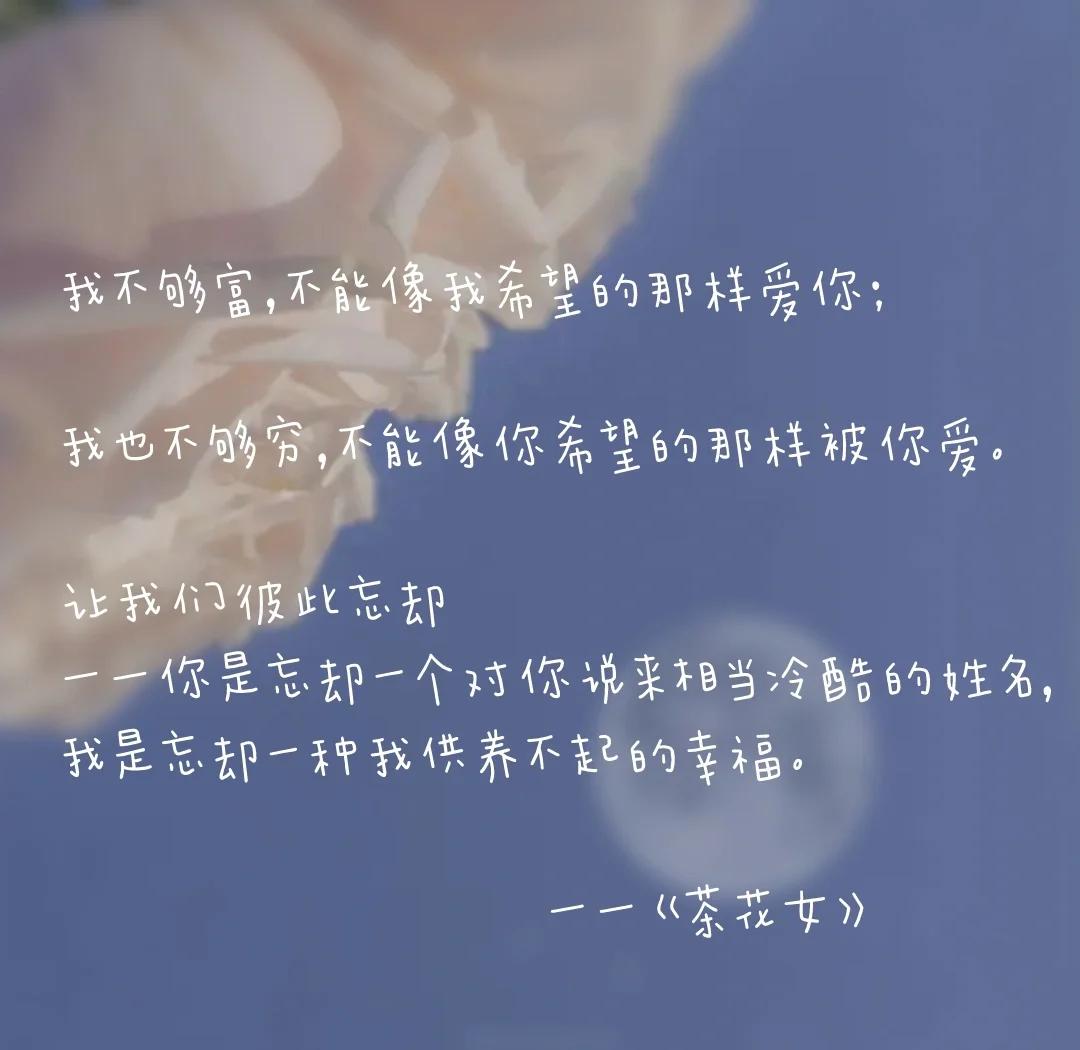 我不够富,不能像我希望的那样爱你;
我也不够穷,不能像你希望的那样被你爱。
让我们彼此忘却
——你是忘却一个对你说来相当冷酷的姓名,
我是忘却一种我供养不起的幸福。
——《茶花女》